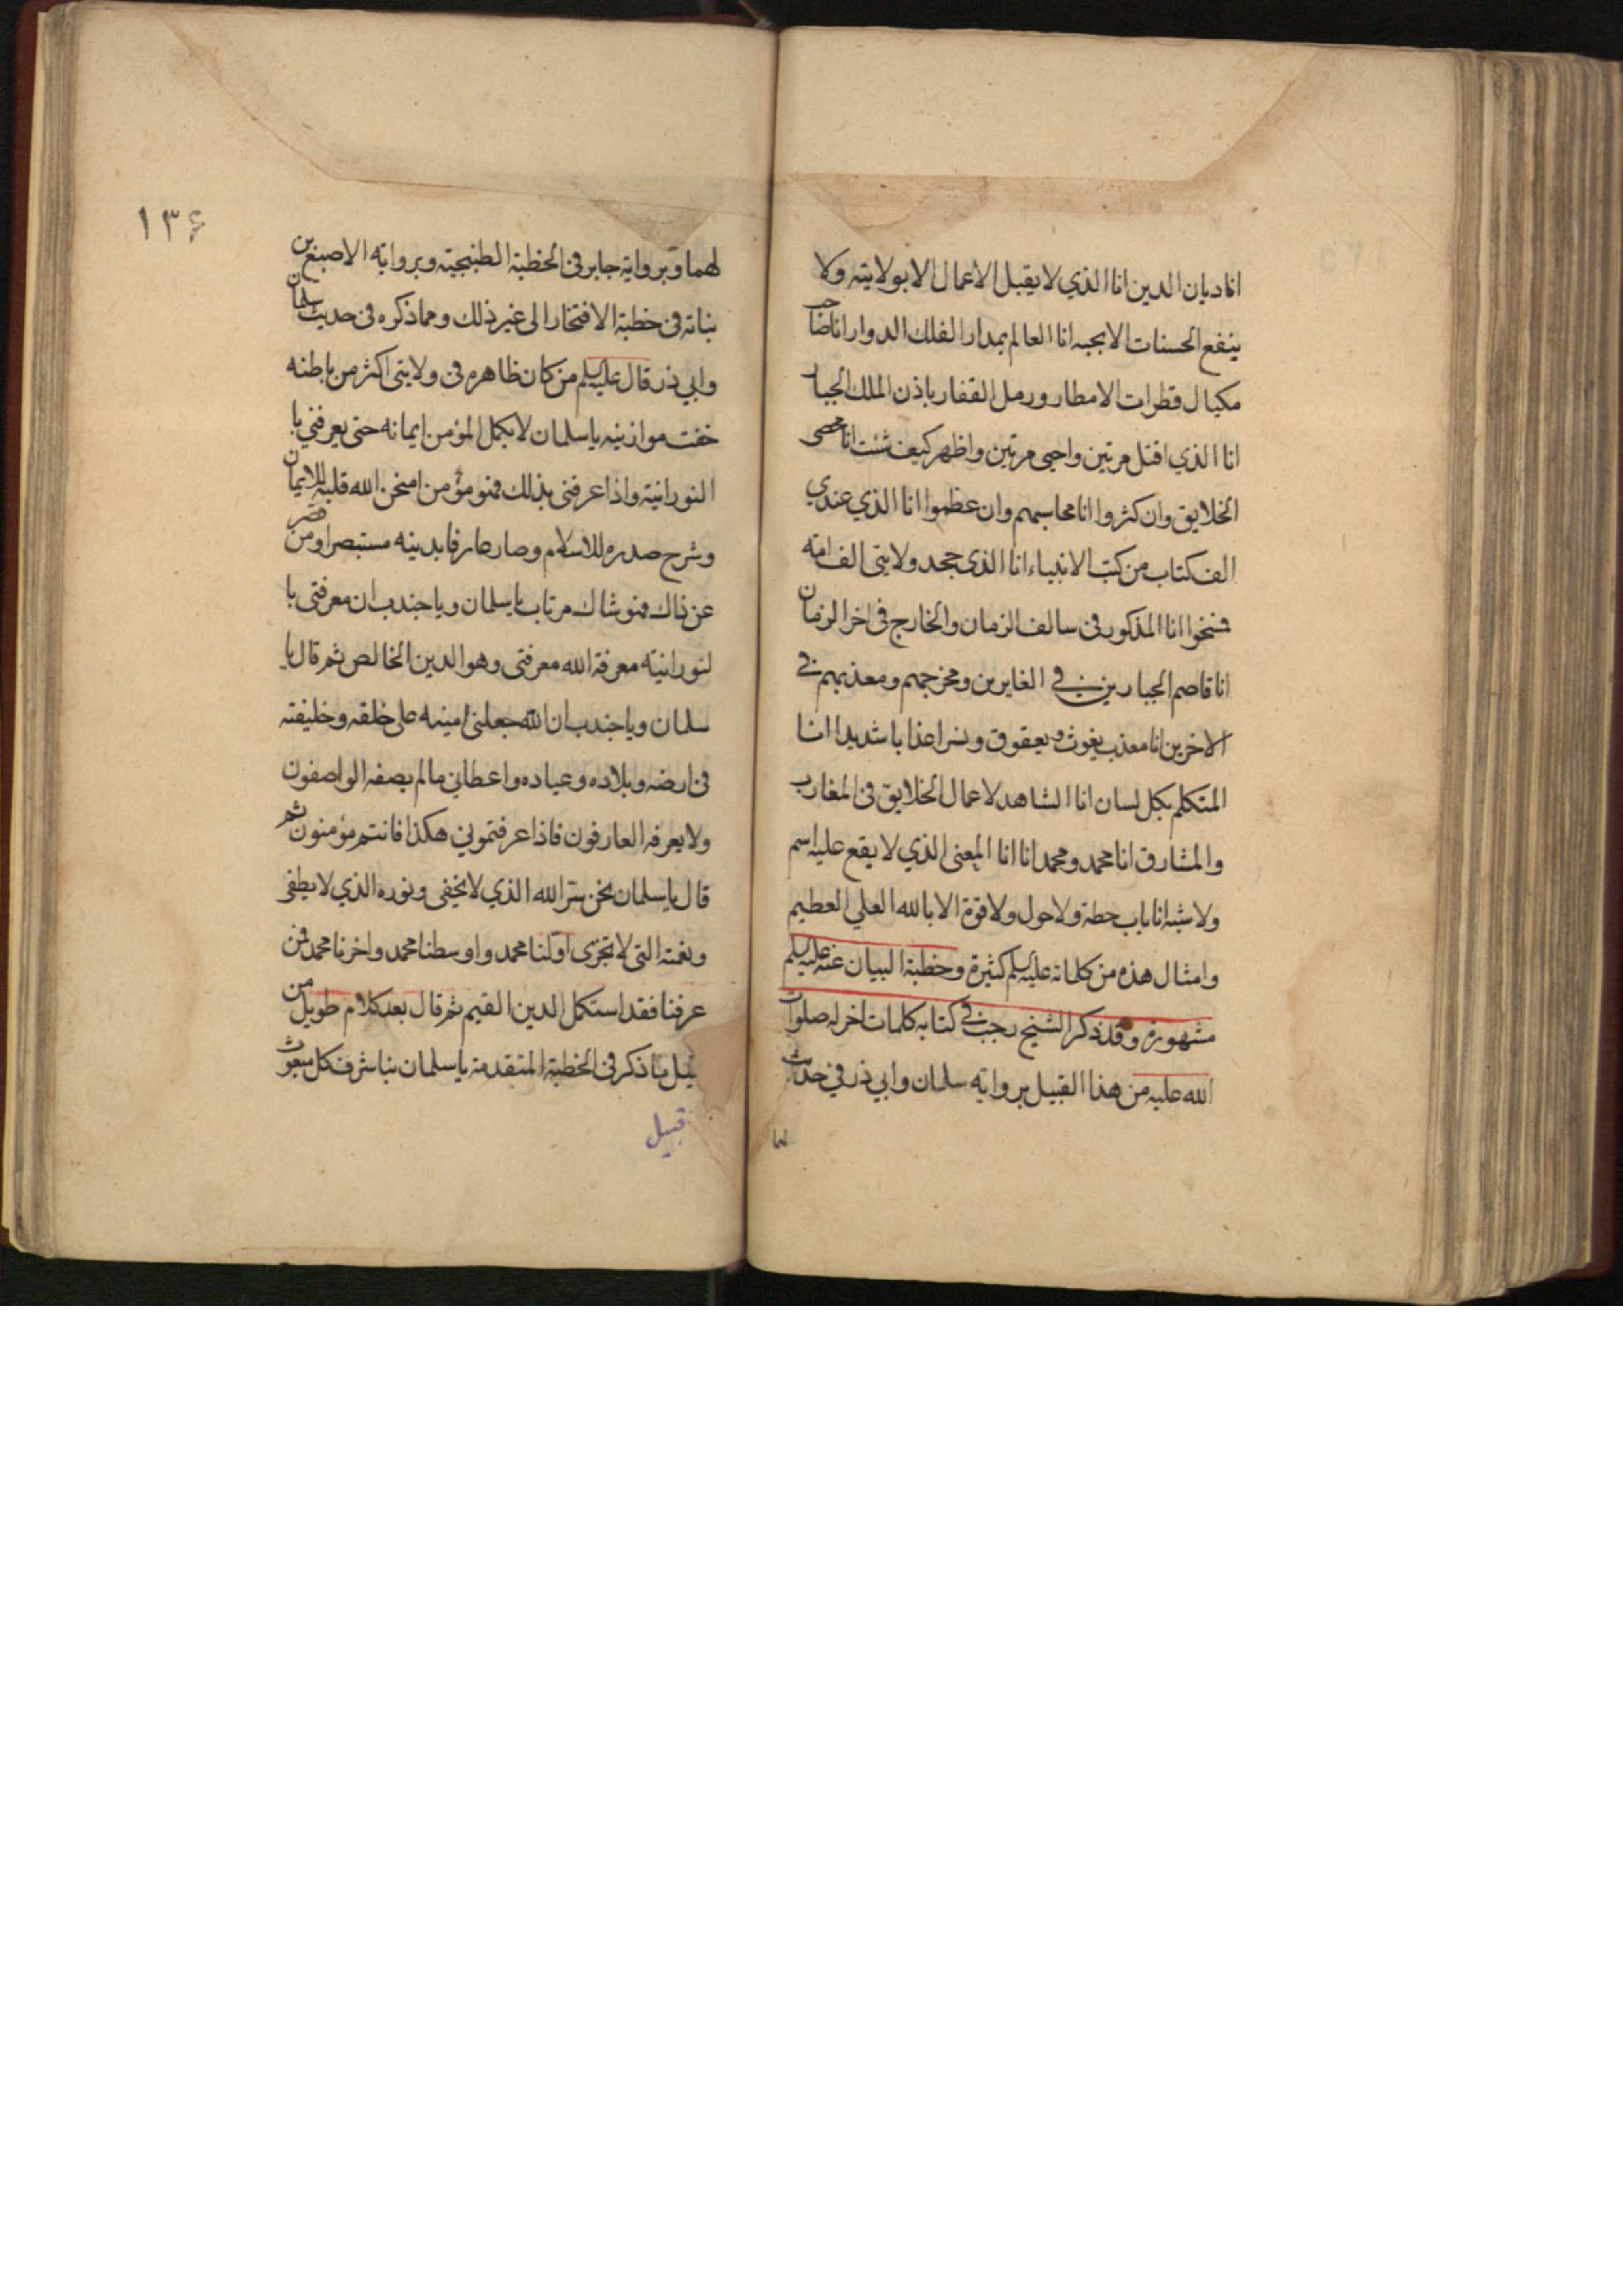 انا ديان الدين انا الذي لا يقبل الاعمال الا بولايته ولا
ينفع الحسنات الا بحبه انا العالم بمدار الفلك الدوار انا صاحب
مكيال قطرات الامطار ورمل القفار باذن الملك الجبار
انا الذي اقتل مرتين واحيى مرتين واظهر كيف شئت انا محصى
الخلايق وان كثروا انا محاسبهم وان عظموا انا الذي عندي
الف كتاب من كتب الانبياء انا الذي جحد ولايتى الف امته
فنسخوا انا المذكور في سالف الزمان والخارج في اخر الزمان
انا قاصم الجبارين في الغابرين ومخرجهم ومعذبهم في
الاخرين انا معذب يغوث ويعقوق ونسرا عذابا شديدا انا
المتكلم بكل لسان انا الشاهد لاعمال الخلايق في المغارب
والمشارق انا محمد ومحمد انا انا المعنى الذي لا يقع عليه اسم
ولا شبه انا باب حطة ولا حول ولا قوة الا بالله العلي العظيم
وامثال هذه من كلماته عليه السلم كثيرة وخطبة البيان عنه عليه السلم
مشهورة وقد ذكر الشيخ رجب في كتابه كلمات اخر له صلوات
الله عليه من هذا القبيل برواية سلمان وابي ذر في حديث
لهما
١٣۶
لهما وبرواية جابر في الخطبة الطنجية وبرواية الاصبغ بن
بناته في خطبة الافتخار الى غير ذلك ومما ذكره في حديث سلمان
وابي ذر قال عليه السلم من كان ظاهره في ولايتى اكثر من باطنه
خفت موازينه يا سلمان لا يكمل المؤمن ايمانه حتى يعرفني با
النورانية واذا عرفني بذلك فهو مؤمن امتحن الله قلبه للايمان
وشرح صدره للاسلام وصار عارفا بدينه مستبصرا ومن قصر
عن ذاك فهو شاك مرتاب يا سلمان ويا جندب ان معرفتى با
لنورانية معرفة الله معرفتى وهو الدين الخالص ثم قال يا
سلمان ويا جندب ان الله جعلنى امينه على خلقه وخليفته
في ارضه وبلاده وعباده واعطاني ما لم يصفه الواصفون
ولا يعرفه العارفون فاذا عرفتموني هكذا فانتم مؤمنون ثم
قال يا سلمان نحن سر الله الذي لا يخفى ونوره الذي لا يطفى
ونعمته التي لا تجزى اولنا محمد واوسطنا محمد واخرنا محمد فمن
عرفنا فقد استكمل الدين القيم ثم قال بعد كلام طويل من
بيل ما ذكر في الخطبة المتقدمة يا سلمان بنا شرف كل مبعوث
قبيل